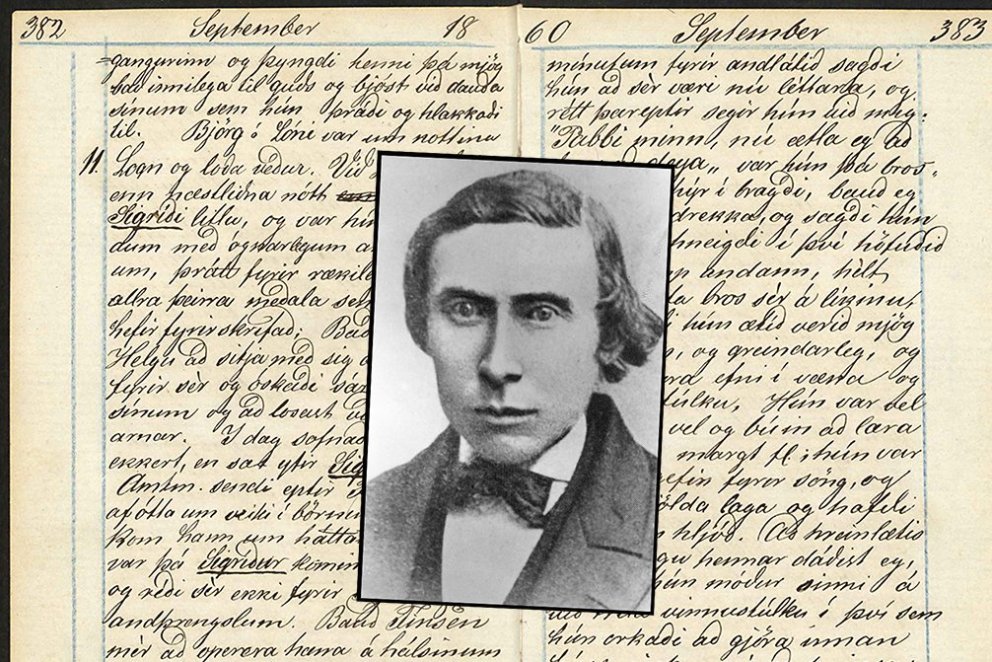 382 September 18
=gangurinn og þyngdi henni þá mjög
bað innilega til guðs og bjóst við dauða
sínum sem hún þráði og hlakkaði
til. Björg á Lóni var um nóttina
11. Logn og loða veður.
enn næstliðna nótt
Sigríði litlu, og var
dum með ógnarlegum
um, þrátt fyrir
allra þeirra meðala
hefir fyrirskrifað;
Helgu að sitja með sig
fyrir sér og óskaði
sínum og að losast
arnar. Í dag sofnað
ekkert, en sat yfir
Amtm. sendi eptir
af ótta um veiki í
kom hann um hátta
var þá Sigríður
og réði sér ekki fyrir
andþrengslum. Bauð Finsen
mér að operera hana á hálsinum
60 September 383
mínutum fyrir andlátið sagði
hún að sér væri nú léttara, og
rétt þareptir segir hún við mig:
"Pabbi minn, nú ætla eg að
deya„ var hún þá bros=
hýr í bragði, bauð eg
drekka, og sagði hún
hneigði í því höfuðið
andann, hélt
bros sér á líkinu,
hún ætíð verið mjög
og greindarleg, og
efni í væna og
Hún var vel
vel og búin að læra
margt fl: hún var
fyrir söng, og
laga og hafði
hljóð. Að hreinlætis
hennar dáðist eg,
móður sinni á
vinnustúlku í því sem
hún orkaði að gjöra innan